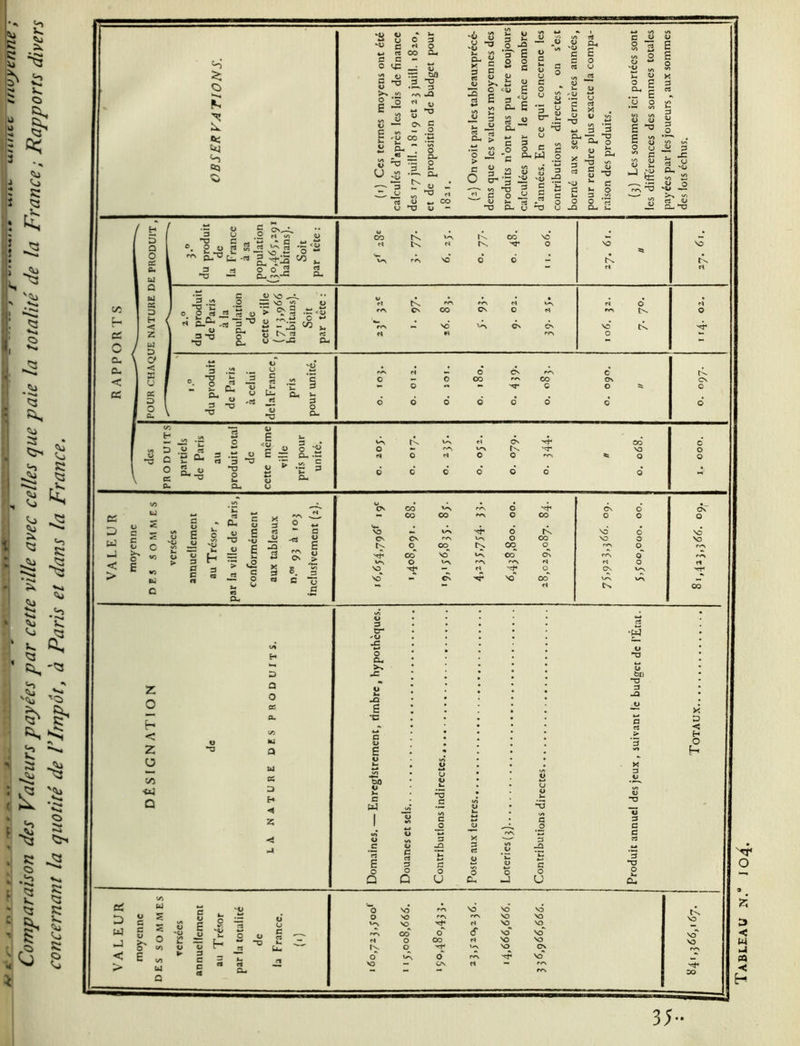 Comparaison des Valeurs payées par cette ville avec celles que paie la totalité de la France; Rapports divers
concernant la quotité de l'Impôt, à Paris et dans la France.
VALEUR
moyenne
DES SOMMES
versées
annuellement
au Trésor,
par la totalité
de
la France.
(1)
DÉSIGNATION
de
LA NATURE DES PRODUITS.
VALEUR
moyenne
DES SOMMES
versées
annuellement
au Trésor,
par la ville de Paris,
conformément
aux tableaux
n.os 93 à 103
inclusivement (2).
RAPPORTS
des
PRODUITS
partiels
de Paris
au
produit total
de
cette même
ville
pris pour
unité.
POUR CHAQUE NATURE DE PRODUIT,
1.°
du produit
de Paris
à celui
de la France,
pris
pour unité.
2.°
du produit
de Paris
à la
population
de
cette ville
(713,966
habitans).
Soit
par tête :
3.°
du produit
de
la France
à sa
population
(30,465,291
habitans).
Soit
par tête :
OBSERVATIONS.
160,723,500f
Domaines. — Enregistrement, timbre, hypothèques.
16,654,796f 19c
0. 205.
0. 103.
23f 32c
5f 28c
115,008,666.
Douanes et sels
1,408,091. 88.
0. 017.
0. 012.
1. 97.
3. 77.
190,480,433.
Contributions indirectes
19,156,835. 85.
0. 235.
0. 101.
26. 83.
6. 25.
Poste aux lettres
4,235,754. 33.
0. 052.
0. 180.
5. 93.
0. 77.
14,666,666.
Loteries (3)
6,438,800. 00.
0. 079.
0. 439.
9. 02.
0. 48.
336,966,666.
Contributions directes
28,029,087. 84.
0. 344.
0. 083.
39. 25.
11. 06.
75,923,366. 09.
0. 090.
106. 32.
27. 61.
Produit annuel des jeux, suivant le budget de l'État.
5,500,000. 00.
0. 068.
"
7. 70.
"
841,366,167.
TOTAUX
81,423,366. 09.
1. 000.
0. 097.
114. 02.
27. 61.
(1) Ces termes moyens ont été
calculés d'après les lois de finance
des 17 juill. 1819 et 23 juill. 1820,
et de proposition de budget pour
1821.
(2) On voit par les tableaux précé-
dens que les valeurs moyennes des
produits n'ont pas pu être toujours
calculées pour le même nombre
d'années. En ce qui concerne les
contributions directes, on s'est
borné aux sept dernières années,
pour rendre plus exacte la compa-
raison des produits.
(3) Les sommes ici portées sont
les différences des sommes totales
payées par les joueurs, aux sommes
des lots échus.
TABLEAU N.° 104.
35..